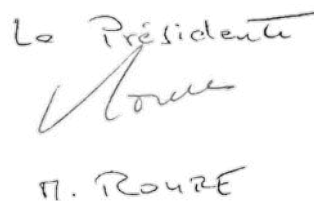 La Présidente
M. ROURE